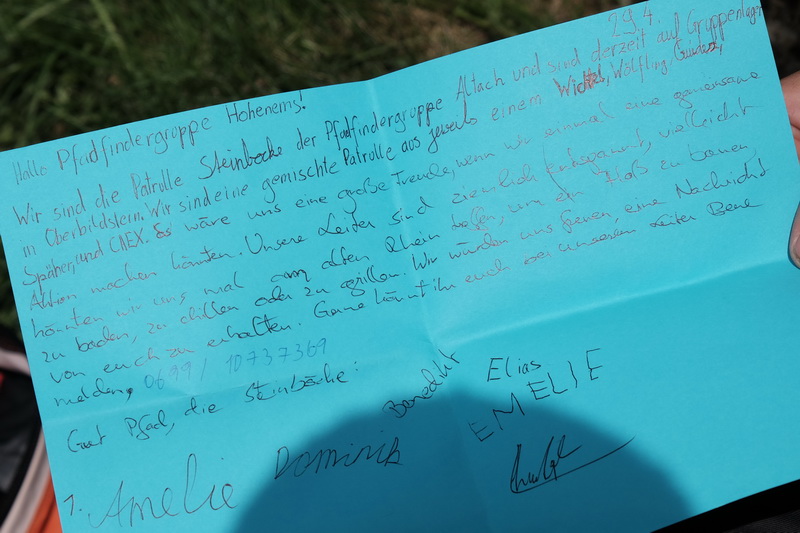 29.4.
Hallo Pfadfindergruppe Hohenems!
Wir sind die Patrolle Steinböcke der Pfadfindergruppe Altach und sind derzeit auf Gruppenlager
in Oberbildstein. Wir sind eine gemischte Patrolle aus jeweils einem Wichtel, Wölfling, Guides,
Späher, und CAEX. Es wäre uns eine große Freude, wenn wir einmal eine gemeinsame
Aktion machen könnten. Unsere Leiter sind ziemlich entspannt, vielleicht
könnten wir uns mal am alten Rhein treffen, um ein Floß zu bauen,
zu baden, zu chillen oder zu grillen. Wir würden uns freuen, eine Nachricht
von euch zu erhalten. Gerne könnt ihr euch bei unserem Leiter Bene
melden, 0699/10737369
Gut Pfad, die Steinböcke:
1. Amelie Dominik Benedikt Elias
EMELIE